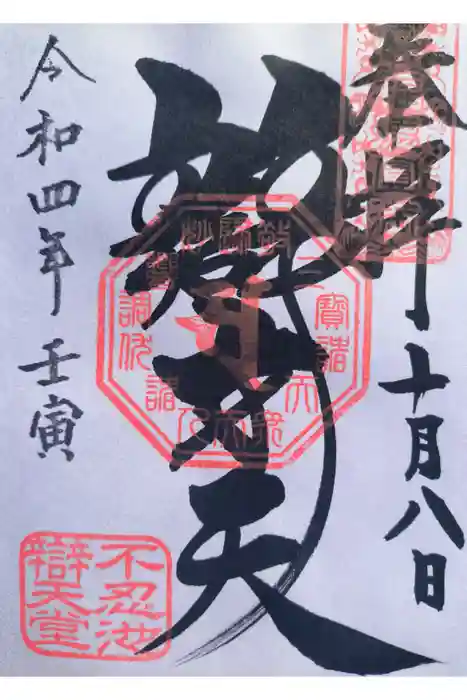 奉拝
十月八日
辯才天
令和四年 壬寅
不忍池
辯天堂